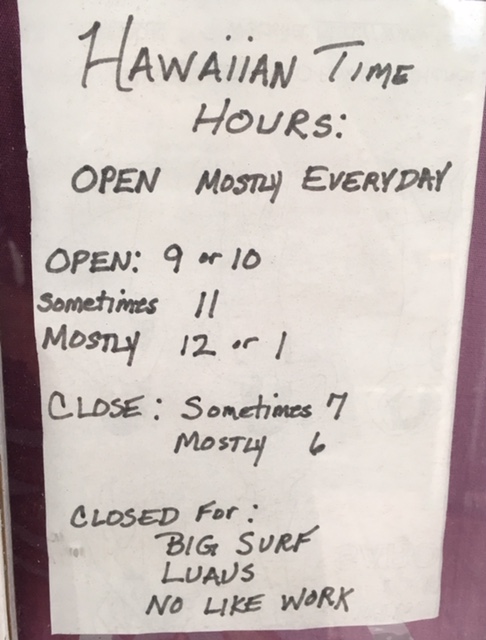 HAWAIIAN TIME
HOURS:
OPEN MOSTLY EVERYDAY
OPEN: 9 or 10
Sometimes 11
MOSTLY 12 or 1
CLOSE: Sometimes 7
MOSTLY 6
CLOSED For:
BIG SURF
LUAUS
NO LIKE WORK